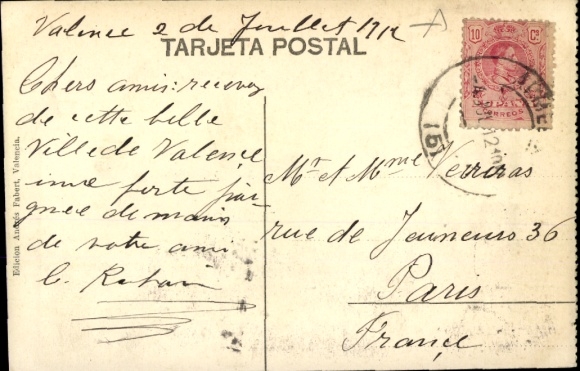 Valence 2 de Juillet 1912
TARJETA POSTAL
Chers amis: recevez
de cette belle
Ville de Valence
une forte poi-
gnee de main
de votre ami
C.
Mr et Mme Verreras
rue de Jeuneurs 36
Paris
France
10 Cs
CORREOS
Edicion Andrés Fabert, Valencia.